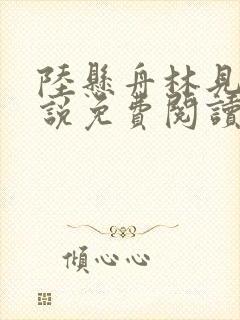 陸懸舟林見
說免費閱讀
傾心心